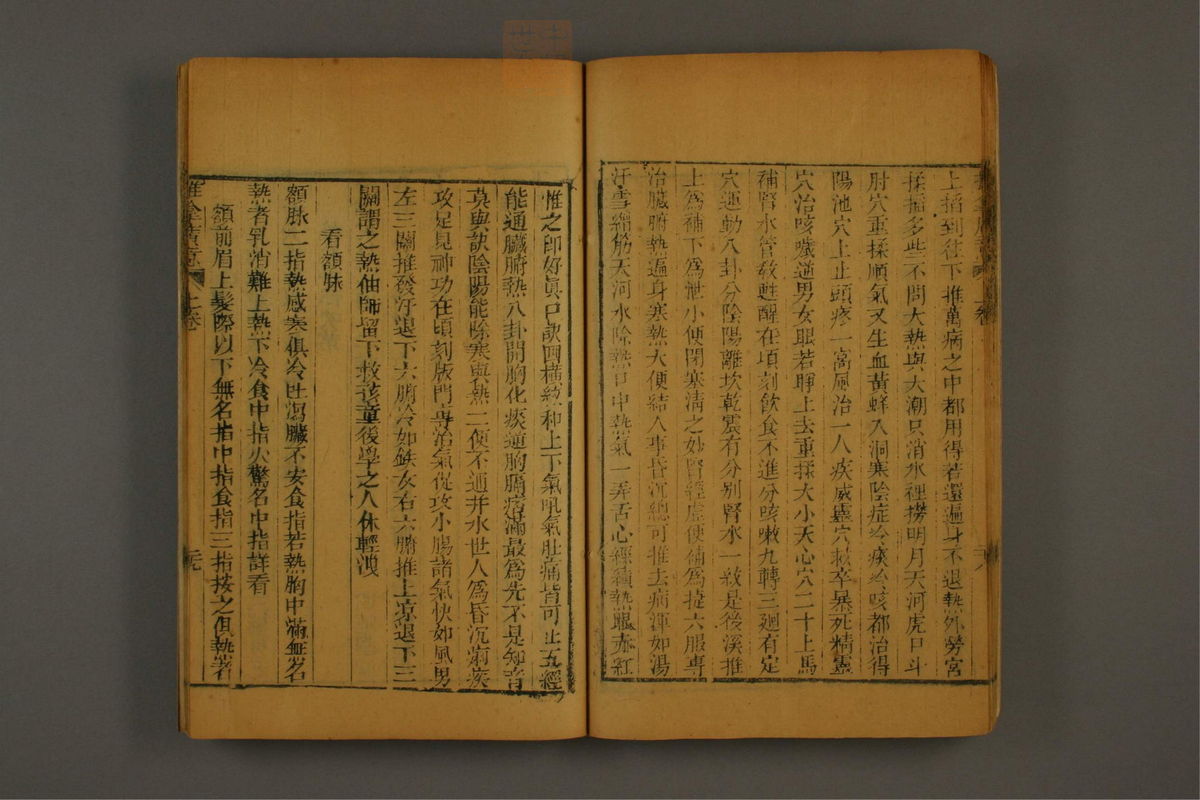 上招到往下推萬病之中都用得若還遍身不退熱外勞宮
揉招多些不問大熱與大潮只消水裡撈明月天河虎口斗
肘穴重揉順氣又生血黃蜂入洞寒陰症冷痰冷咳都治得
陽池穴上止頭疼一窩風治一人疾威靈穴救卒暴死精靈
穴治咳噦逆男女眼若睜上去重揉大小天心穴二十上馬
補腎水管教甦醒在頃刻飲食不進分咳嗽九轉三廻有定
穴運動八卦分陰陽離坎乾震有分別腎水一紋是後溪推
上為補下為泄小便閉塞清之妙腎經虛便補為捷六腑專
治臟腑熱遍身寒熱大便結人事昏沉總可推去病渾如湯
汗雪總筋天河水除熱口中熱氣一弄舌心經積熱眼赤紅
推之即好真口訣四橫紋和上下氣吼氣肚痛皆可止五經
能通臟腑熱八卦開胸化痰運胸膈痞滿最為先不是知音
莫與訣陰陽能除寒與熱二便不通井水世人為昏沉痢疾
攻足見神功在頃刻版門專治氣從攻小腸諸氣快如風男
左三關推發汗退下六腑冷如鉄女右六腑推上凉退下三
關謂之熱仙師留下救孩童後學之人休輕洩
看額脉
額脉二指熱感寒俱冷吐瀉臟不安食指若熱胸中滿無名
熱者乳消難上熱下冷食中指火驚名中指詳看
額前眉上髮際以下無名指中指食指三指按之俱熱者
上卷
元